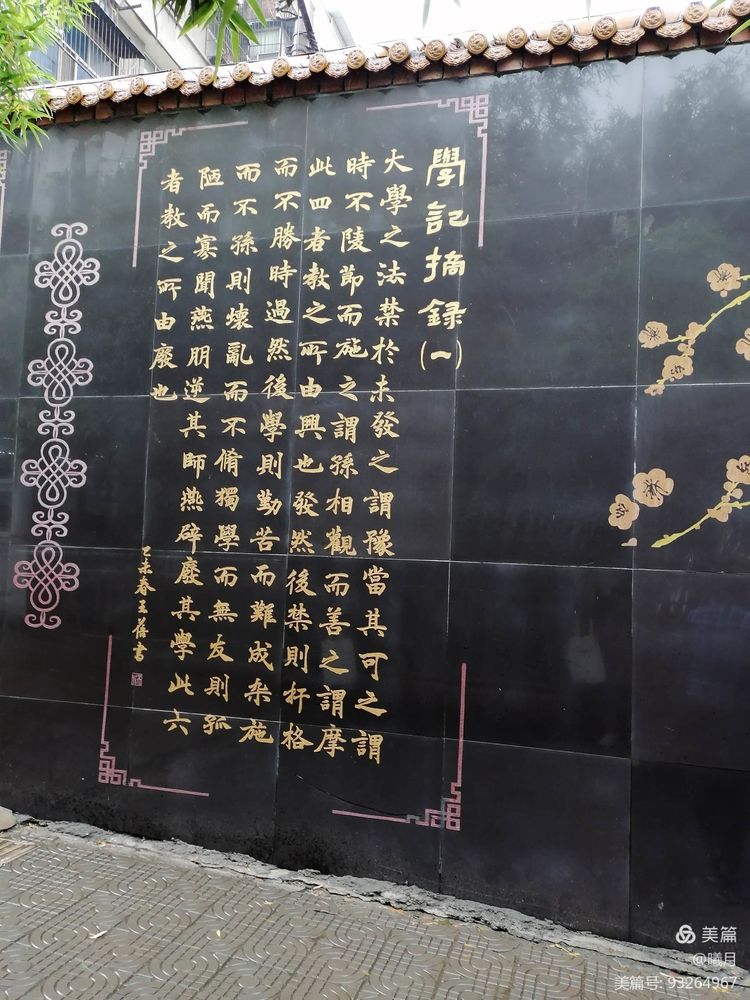 學記摘錄(一)
大學之法禁於未發之謂豫當其可之謂
時不陵節而施之謂孫相觀而善之謂摩
此四者教之所由興也發然後禁則扞格
而不勝時過然後學則勤苦而難成雜施
而不孫則壞亂而不脩獨學而無友則孤
陋而寡聞燕朋逆其師燕辟廢其學此六
者教之所由廢也
春王蓓書
美篇
@曦月
美篇号: 93264967